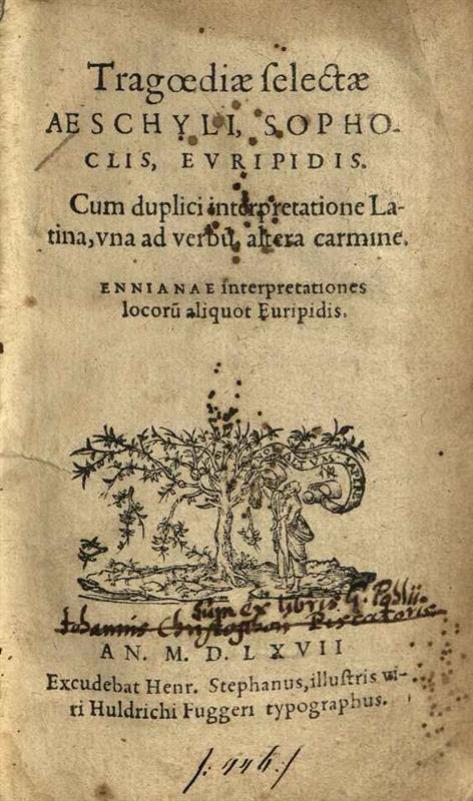 Tragœdiæ ſelectæ
AESCHYLI, SOPHO-
CLIS, EVRIPIDIS.
Cum duplici interpretatione La-
tina, vna ad verbũ, altera carmine.
ENNIANAE interpretationes
locorũ aliquot Euripidis.
Sum ex libris G. Pohlii
Iohannis Christophori Piscatoris
AN. M. D. LXVII
Excudebat Henr. Stephanus, illuſtris vi-
ri Huldrichi Fuggeri typographus.